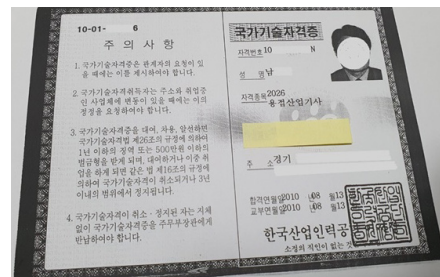 10-01-      6
주 의 사 항
1. 국가기술자격증은 관계자의 요청이 있
을 때에는 이를 제시하여야 합니다.
2. 국가기술자격취득자는 주소와 취업중
인 사업체에 변동이 있을 때에는 이의
정정을 요청하여야 합니다.
3. 국가기술자격증을 대여, 차용, 알선하면
국가기술자격법 제26조의 규정에 의하여
1년 이하의 징역 또는 500만원 이하의
벌금형을 받게 되며, 대여하거나 이중 취
업을 하게 되면 같은 법 제16조의 규정에
의하여 국가기술자격이 취소되거나 3년
이내의 범위에서 정지됩니다.
4. 국가기술자격이 취소·정지된 자는 지체
없이 국가기술자격증을 주무부장관에게
반납하여야 합니다.
국가기술자격증
자격번호 10      N
성 명 남
자격종목 2026
용접산업기사
주 소 경기
합격연월일 2010 년 08 월 13
교부연월일 2010 년 08 월 13
한국산업인력공
소정의 직인이 없는 것